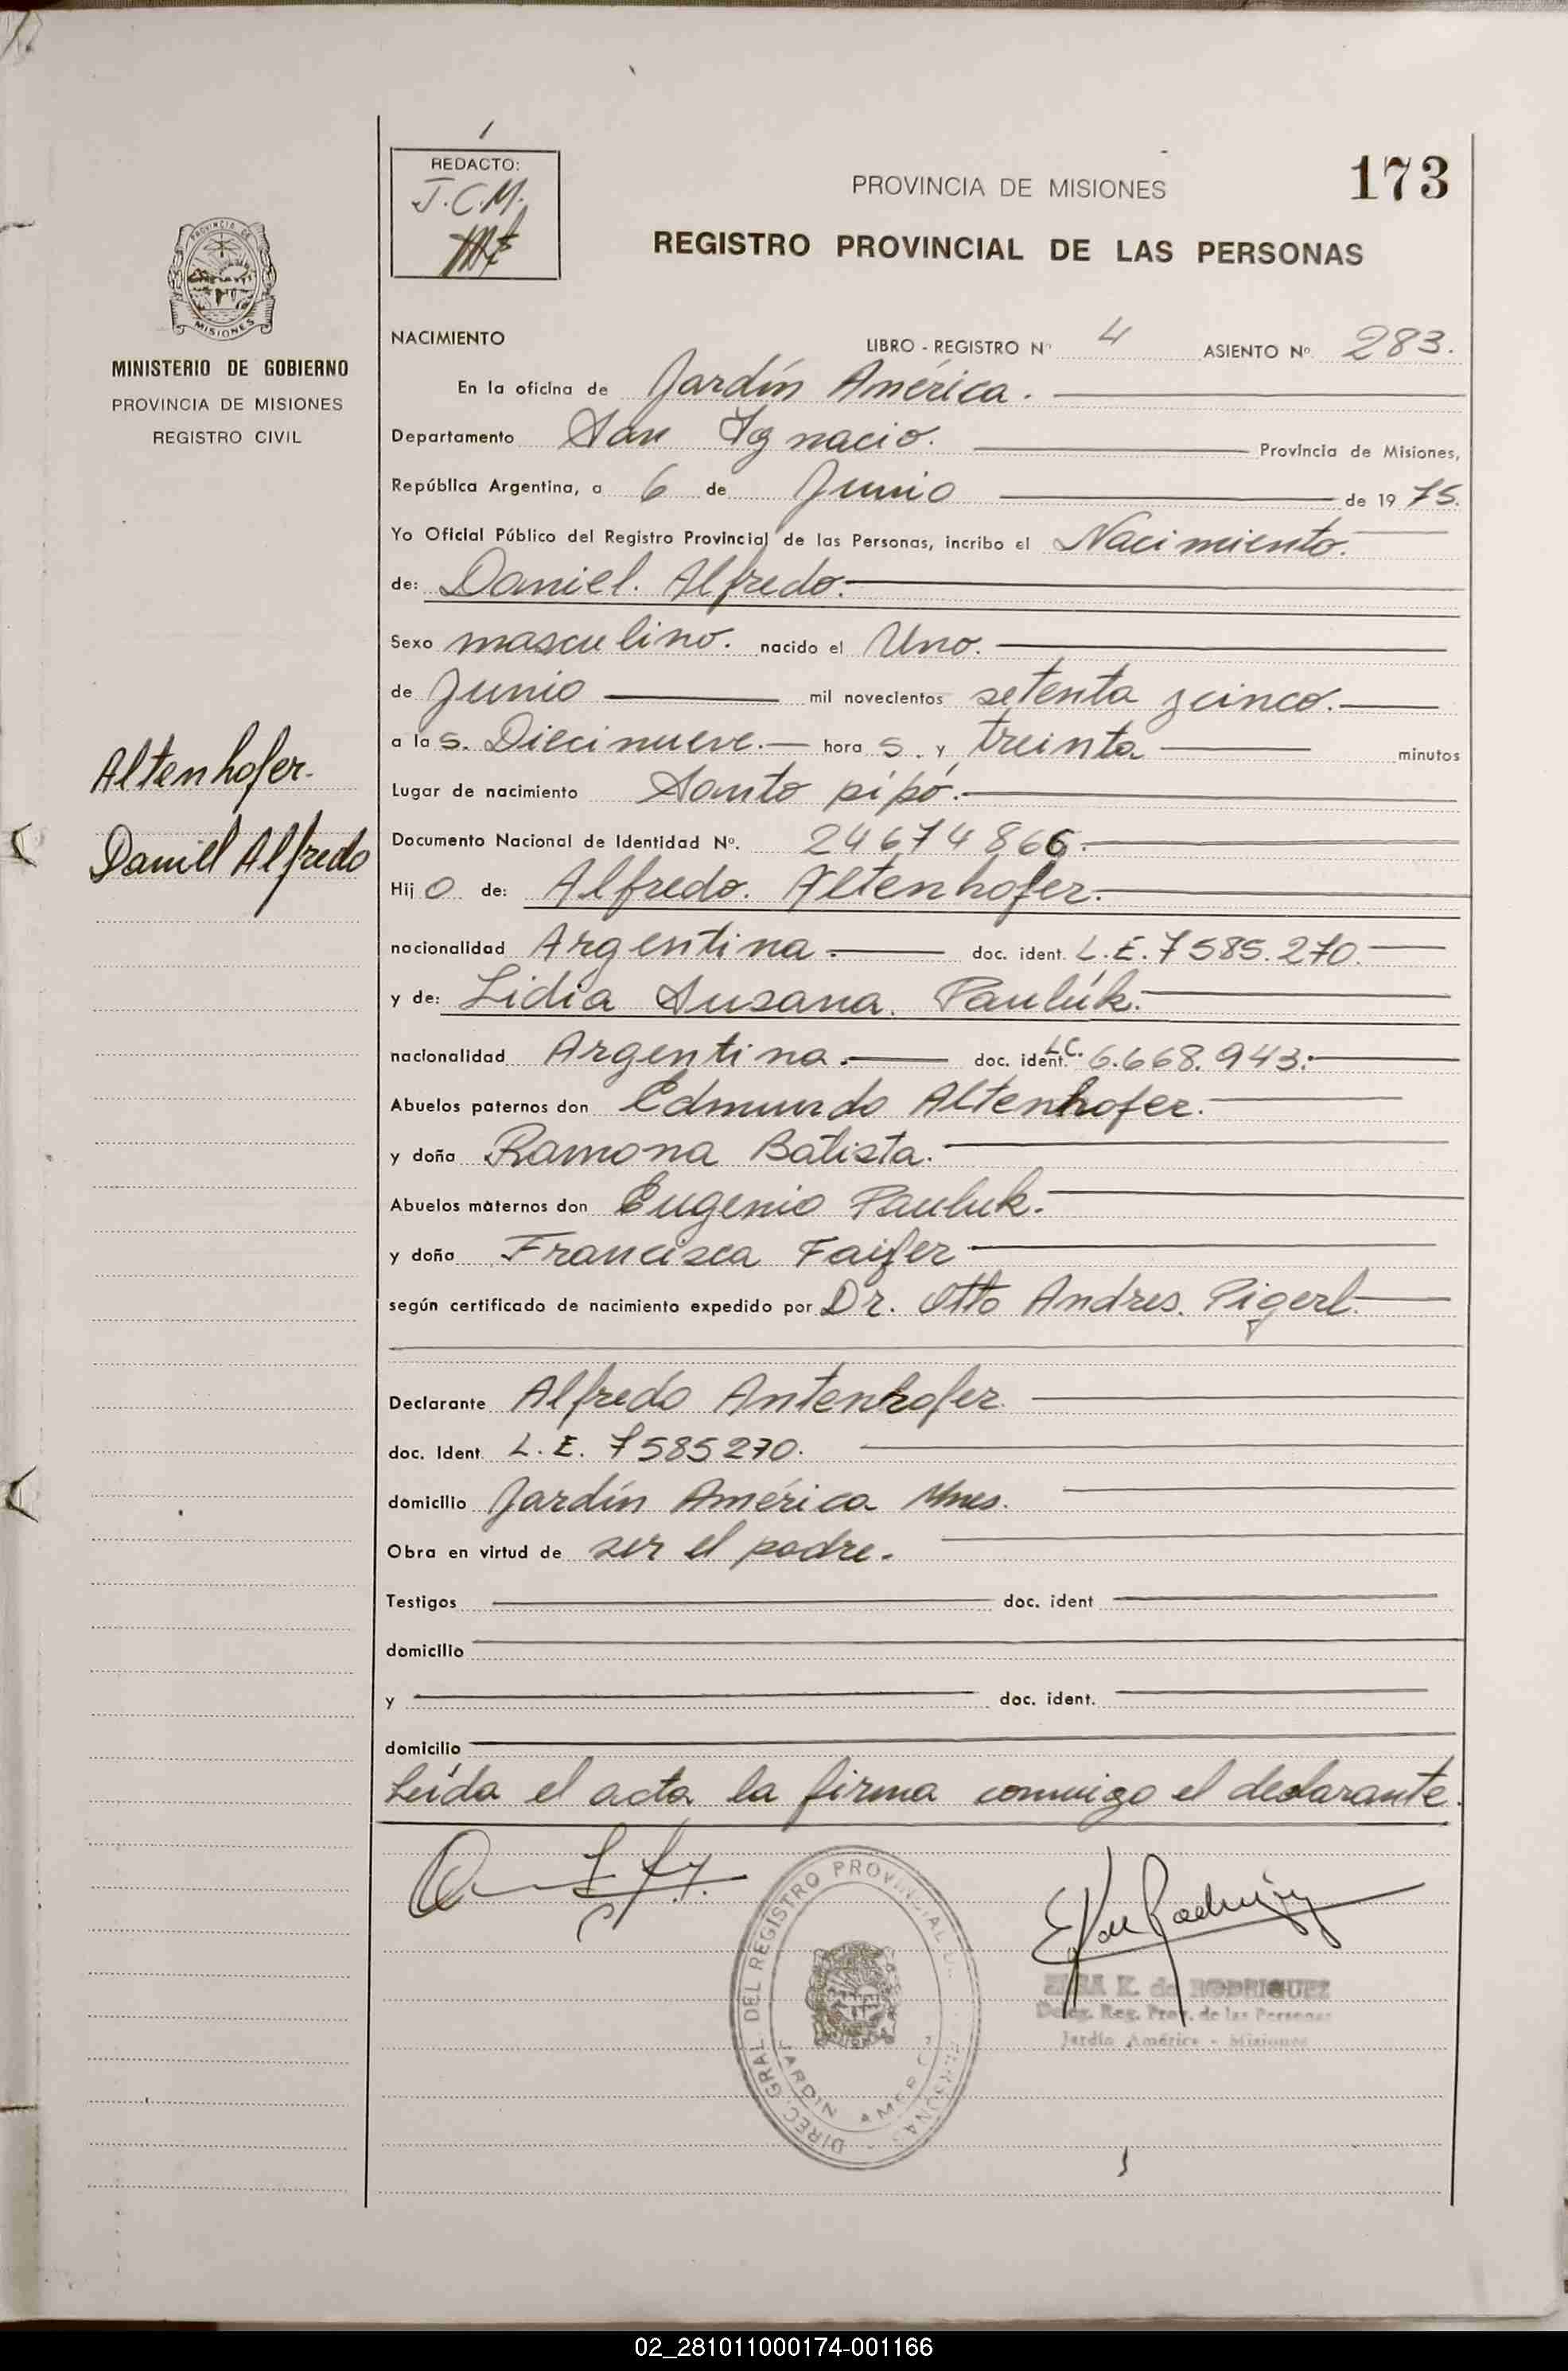 REDACTO:
J.C.M.
PROVINCIA DE MISIONES
173
REGISTRO PROVINCIAL DE LAS PERSONAS
PROVINCIA DE
MISIONES
MINISTERIO DE GOBIERNO
PROVINCIA DE MISIONES
REGISTRO CIVIL
Altenhofer.
Daniel Alfredo
NACIMIENTO LIBRO - REGISTRO Nº 4 ASIENTO Nº 283.
En la oficina de Jardín América.
Departamento San Ignacio. Provincia de Misiones,
República Argentina, a 6 de Junio de 19 75.
Yo Oficial Público del Registro Provincial de las Personas, incribo el Nacimiento.
de: Daniel. Alfredo.
Sexo masculino. nacido el Uno.
de Junio mil novecientos setenta y cinco.
a las. Diecinueve. horas. y treinta minutos
Lugar de nacimiento Santo pípó.
Documento Nacional de Identidad Nº. 24674866.
Hijo de: Alfredo. Altenhofer.
nacionalidad Argentina. doc. ident. L.E. 7585.270.
y de: Lidia Susana. Paulúk.
nacionalidad Argentina. doc. ident. L.C. 6.668.943.
Abuelos paternos don Edmundo Altenhofer.
y doña Ramona Batista.
Abuelos maternos don Eugenio Pauluk.
y doña Francisca Faifer
según certificado de nacimiento expedido por Dr. Otto Andres. Pigerl.
Declarante Alfredo Antenhofer
doc. Ident. L.E. 7585270.
domicilio Jardín América Mnes.
Obra en virtud de ser el padre.
Testigos doc. ident
domicilio
y doc. ident.
domicilio
Leída el acta la firma conmigo el declarante.
DIREC. GRAL. DEL REGISTRO PROVINCIAL DE PERSONAS
JARDIN AMERICA
K. de RODRIGUEZ
Deleg. Reg. Prov. de las Personas
Jardín América - Misiones
02_281011000174-001166